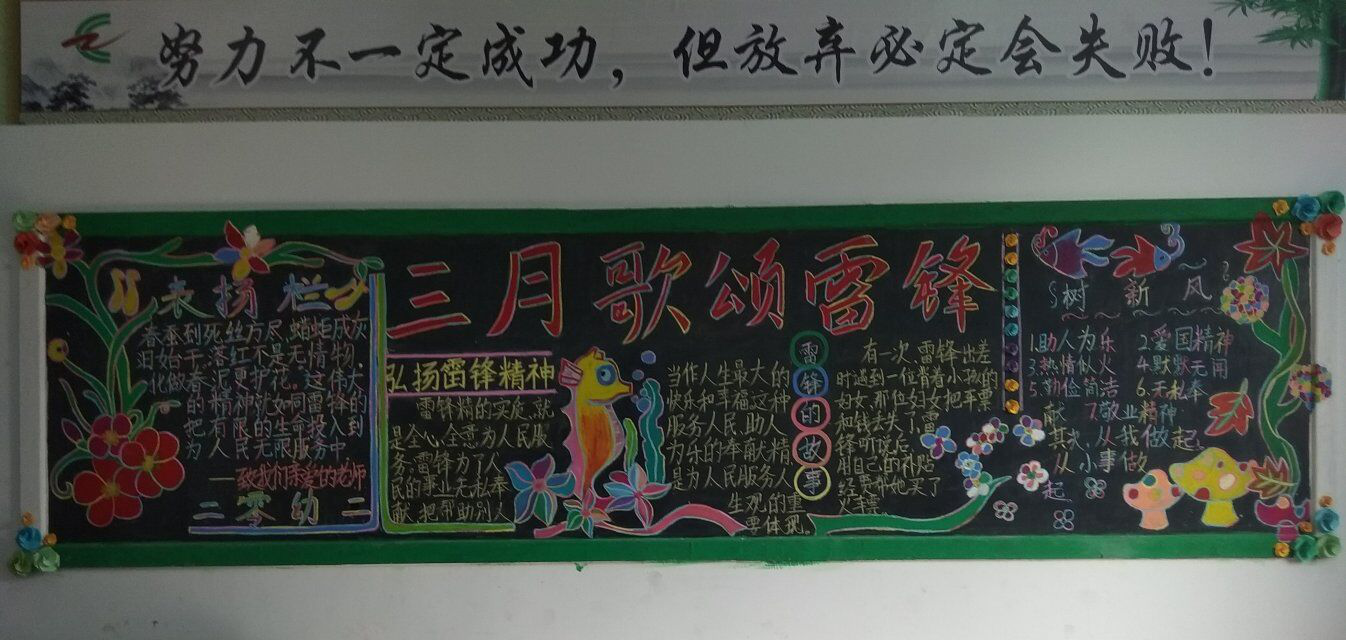 努力不一定成功，但放弃必定会失败！
三月歌颂雷锋
表扬栏
春蚕到死丝方尽,蜡炬成灰
泪始干。落红不是无情物,
化做春泥更护花。这伟大
的精神就如同雷锋的
把有限的生命投入到
为人民无限服务中
——致我们亲爱的老师
二零幼二
弘扬雷锋精神
雷锋精的实质,就
是全心全意为人民服
务。雷锋为了人
民的事业无私奉
献,把帮助别人
当作人生最大的
快乐和幸福这种
服务人民、助人
为乐的奉献精
是为人民服务人
生观的重
要体现。
雷锋的故事
有一次,雷锋出差
时遇到一位背着小孩的
妇女,那位妇女把车票
和钱丢失了,雷
锋听说后,
用自己的补贴
给她买了
火车票
树新风
1.助人为乐 2.爱国精神
3.热情似火 4.默默无闻
5.勤俭简洁 6.无私奉
献 7.敬业精神
其次,从我做起;
从小事做
起